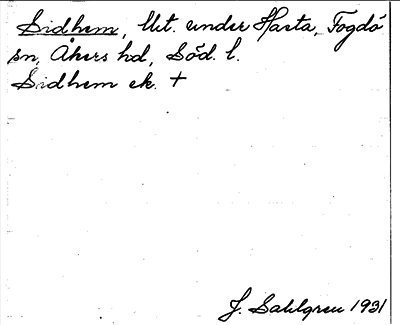 Sidhem, lht. under Harta, Fogdö
sn, Åkers hd, Söd. l.
Sidhem ek. +
J. Sahlgren 1931